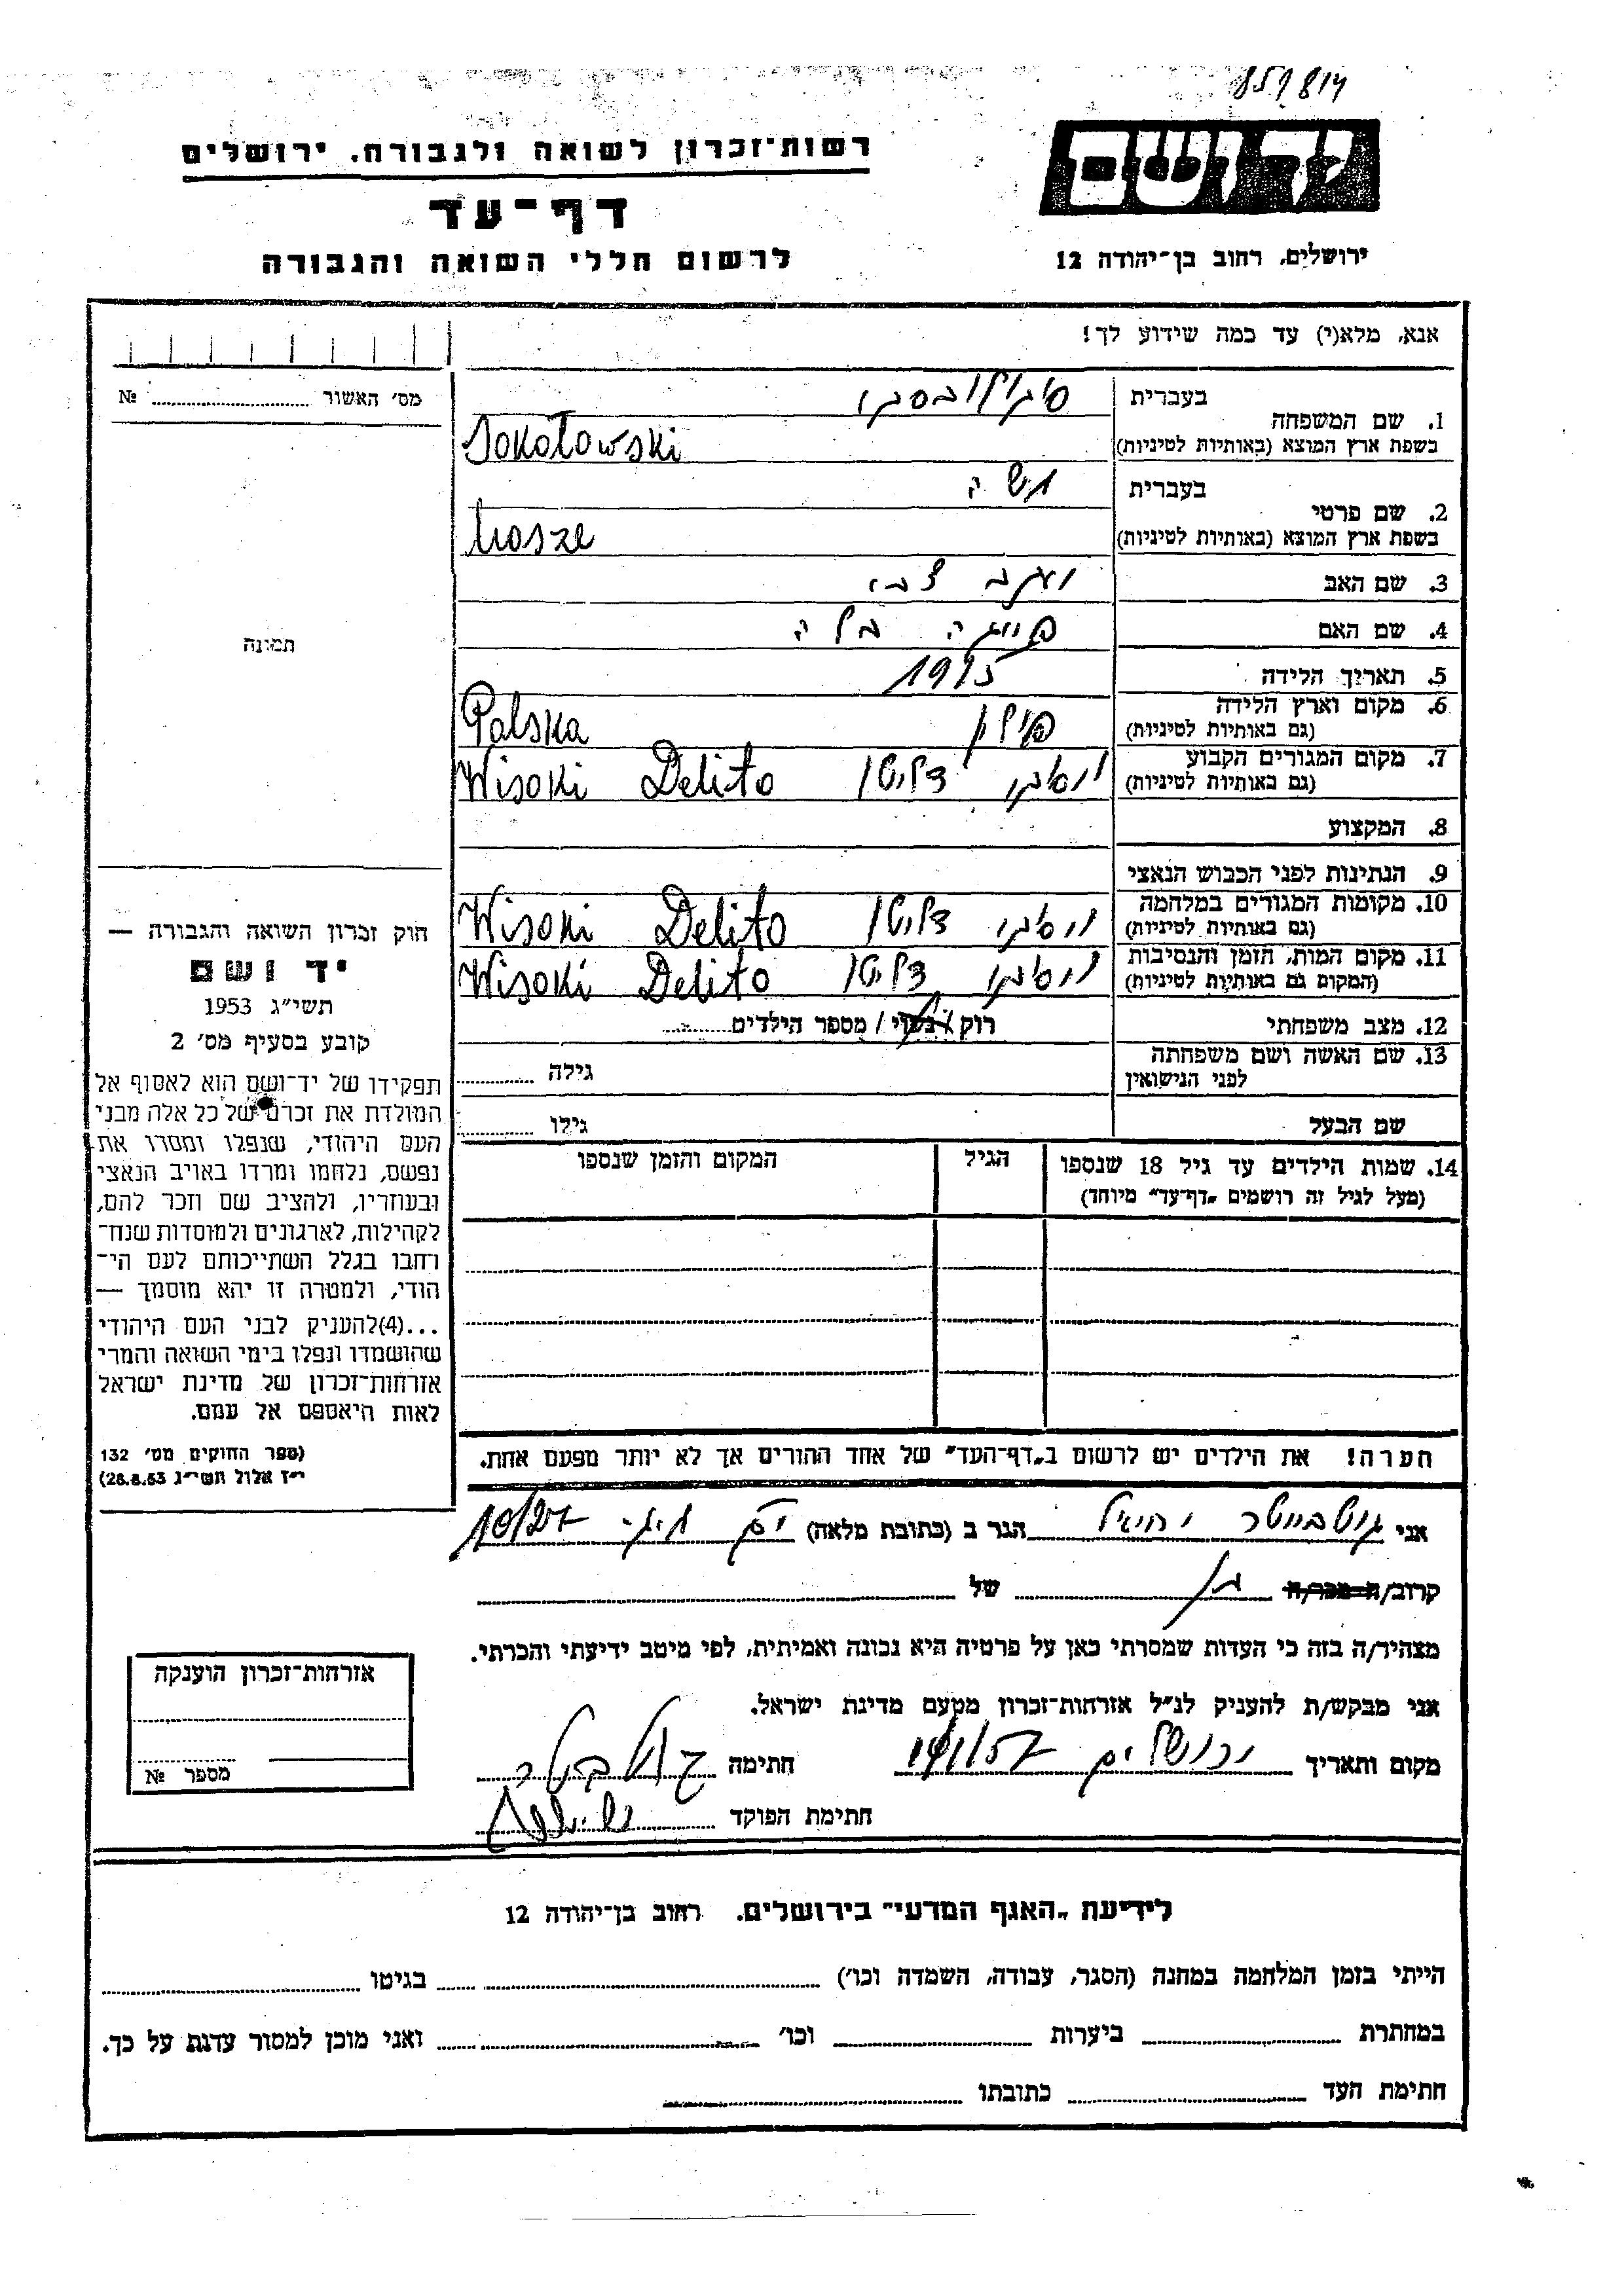 859814
רשות־זכרון לשואה ולגבורה. ירושלים
יד ושם
דף־עד
לרשום חללי השואה והגבורה
ירושלים, רחוב בן־יהודה 12
אנא, מלא(י) עד כמה שידוע לך!
מס׳ האשור № 
1. שם המשפחה
בעברית סוקולובסקי
בשפת ארץ המוצא (באותיות לטיניות) Sokołowski
2. שם פרטי
בעברית משה
בשפת ארץ המוצא (באותיות לטיניות) Mosze
3. שם האב יעקב צבי
4. שם האם בלה
5. תאריך הלידה
6. מקום וארץ הלידה פולין Polska
(גם באותיות לטיניות)
7. מקום המגורים הקבוע ויסוקי דליטו Wisoki Delito
(גם באותיות לטיניות)
8. המקצוע
9. הנתינות לפני הכבוש הנאצי
10. מקומות המגורים במלחמה ויסוקי דליטו Wisoki Delito
(גם באותיות לטיניות)
11. מקום המות, הזמן והנסיבות ויסוקי דליטו Wisoki Delito
(המקום גם באותיות לטיניות)
12. מצב משפחתי רוק / נשוי / מספר הילדים
13. שם האשה ושם משפחתה גילה
לפני הנישואין
שם הבעל גילו
14. שמות הילדים עד גיל 18 שנספו הגיל המקום והזמן שנספו
(מעל לגיל זה רושמים „דף־עד״ מיוחד)
הערה! את הילדים יש לרשום ב„דף־העד״ של אחד ההורים אך לא יותר מפעם אחת.
תמונה
חוק זכרון השואה והגבורה —
יד ושם
תשי״ג 1953
קובע בסעיף מס׳ 2
תפקידו של יד־ושם הוא לאסוף אל
המולדת את זכרם של כל אלה מבני
העם היהודי, שנפלו ומסרו את
נפשם, נלחמו ומרדו באויב הנאצי
ובעוזריו, ולהציב שם וזכר להם,
לקהילות, לארגונים ולמוסדות שנח־
רחבו בגלל השתייכותם לעם הי־
הודי, ולמטרה זו יהא מוסמך —
...(4)להעניק לבני העם היהודי
שהושמדו ונפלו בימי השואה והמרי
אזרחות־זכרון של מדינת ישראל
לאות היאספם אל עמם.
(ספר החוקים מס׳ 132
י״ז אלול תשי״ג 28.8.53)
אני יחיאל הגר ב (כתובת מלאה) 10/27
קרוב/ה מכר/ה של
מצהיר/ה בזה כי העדות שמסרתי כאן על פרטיה היא נכונה ואמיתית, לפי מיטב ידיעתי והכרתי.
אני מבקש/ת להעניק לנ״ל אזרחות־זכרון מטעם מדינת ישראל.
מקום ותאריך ירושלים חתימה
חתימת הפוקד
אזרחות־זכרון הוענקה
מספר №
לידיעת „האגף המדעי״ בירושלים. רחוב בן־יהודה 12
הייתי בזמן המלחמה במחנה (הסגר, עבודה, השמדה וכו׳) בגיטו
במחתרת ביערות וכו׳ ואני מוכן למסור עדות על כך.
חתימת העד כתובתו